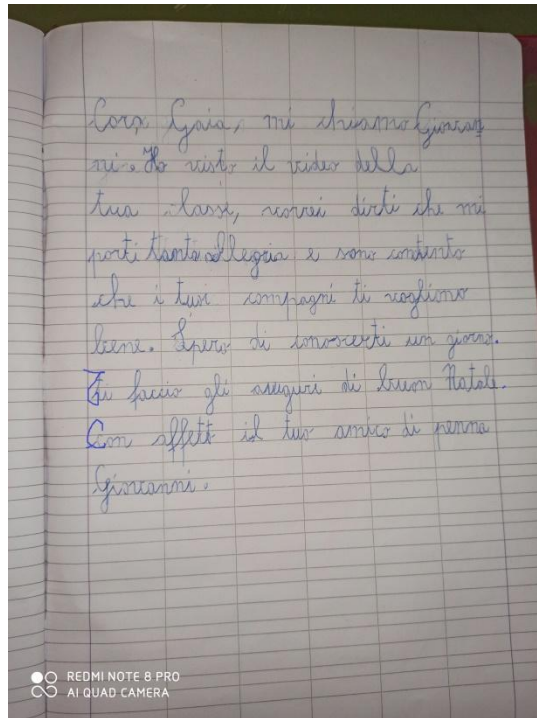 Cara Gaia, mi chiamo Giovan
ni. Ho visto il video della
tua classe, vorrei dirti che mi
porti tanta allegria e sono contento
che i tuoi compagni ti vogliono
bene. Spero di conoscerti un giorno.
Ti faccio gli auguri di buon Natale.
Con affett il tuo amico di penna
Giovanni.
REDMI NOTE 8 PRO
AI QUAD CAMERA